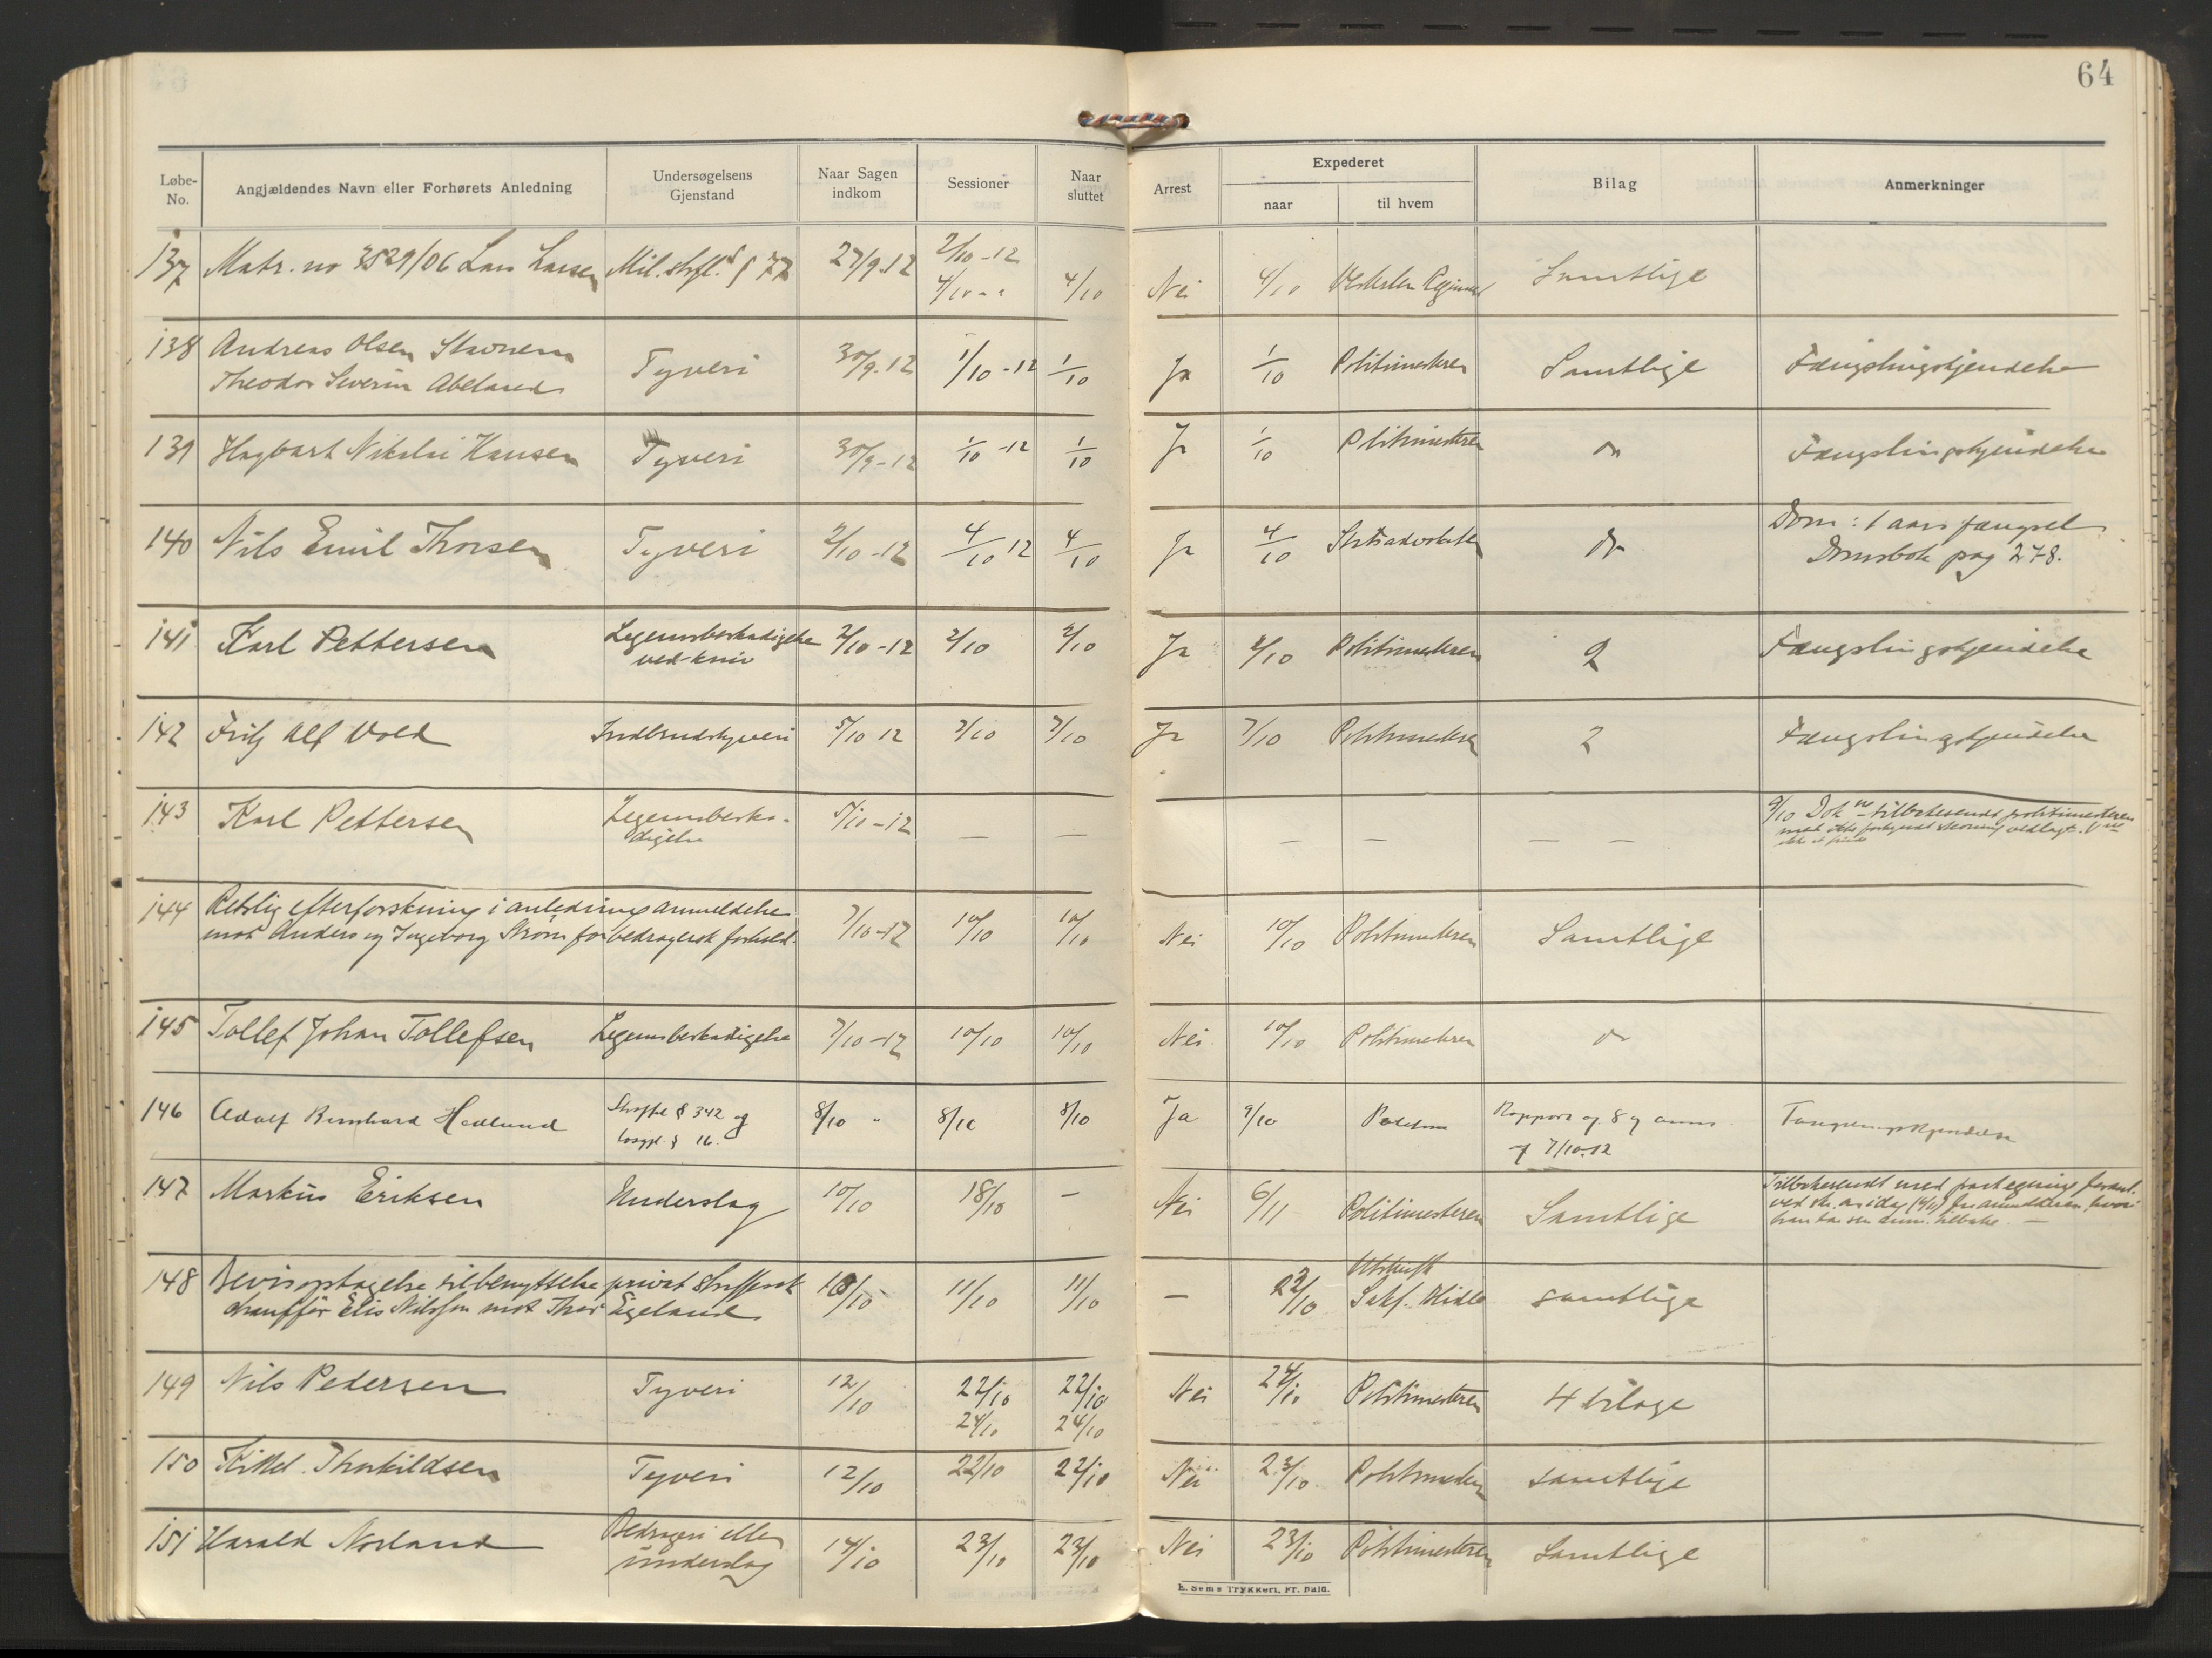 64
Løbe-No. Angjældendes Navn eller Forhørets Anledning Undersøgelsens Gjenstand Naar Sagen indkom Sessioner Naar sluttet Arrest Expederet naar til hvem Bilag Anmerkninger
137 Matr. no 3529/06 Lars Larsen Mil. strfl. § 77 27/9.12 2/10-12 Nei 4/10 Samtlige
4/10 - " 4/10
138 Andreas Olsen Stavnem Tyveri 30/9.12 1/10-12 1/10 Ja 1/10 Politimesteren Samtlige Fængslingskjendelse
Theodor Severin Abeland
139 Hagbart Nikolai Hansen Tyveri 30/9-12 1/10-12 1/10 Ja 1/10 Politimesteren do Fængslingskjendelse
140 Nils Emil Thorsen Tyveri 2/10-12 4/10 12 4/10 Ja 4/10 Statsadvokaten do Dom: 1 aars fængsel
Domsbok pag 278.
141 Karl Pettersen Legemsbeskadigelse 2/10-12 2/10 2/10 Ja 2/10 Politimesteren 2 Fængslingskjendelse
ved kniv
142 Fritz Alf Vold Indbrudstyveri 5/10 12 7/10 7/10 Ja 7/10 Politimesteren 2 Fængslingskjendelse
143 Karl Pettersen Legemsbeska- 5/10-12 — — — — — — 9/10 Dok ne tilbakesendt politimesteren
digelse
144 Retslig efterforskning i anledning anmeldelse 7/10-12 10/10 10/10 Nei 10/10 Politimesteren Samtlige
mot Anders og Ingeborg Strøm for bedragersk forhold.
145 Tollef Johan Tollefsen Legemsbeskadigelse 7/10-12 10/10 10/10 Nei 10/10 Politimesteren do
146 Adolf Bernhard Hedlund Straffel § 342 og 8/10 " 8/10 8/10 Ja 9/10 Rapport og anm. Fængslingskjendelse
løsgl. § 16. af 7/10.12
147 Markus Eriksen Underslag 10/10 18/10 — Nei 6/11 Politimesteren Samtlige Tilbakesendt med paategning
148 Bevisoptagelse til benyttelse privat straffesak 10/10 11/10 11/10 — 22/10 Utskrift
chauffør Elis Nilsson mot Thor Egeland Sakf. Hidle samtlige
149 Nils Pedersen Tyveri 12/10 22/10 22/10 Nei 24/10 Politimesteren 4 bilage
24/10 24/10
150 Kittel Thorkildsen Tyveri 12/10 22/10 22/10 Nei 23/10 Politimesteren samtlige
151 Harald Norland Bedrageri eller 14/10 23/10 23/10 Nei 23/10 Politimesteren Samtlige
underslag
E. Sems Trykkeri, Fr.hald.